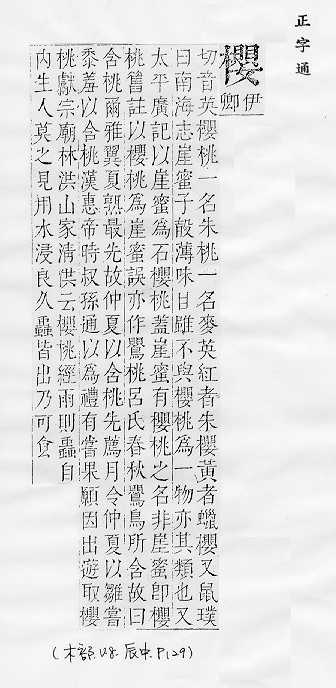 正字通
櫻
伊卿
切音英櫻桃一名朱桃一名麥英紅者朱櫻黃者蠟櫻又鼠璞
曰南海志崖蜜子殼薄味甘雖不與櫻桃爲一物亦其類也又
太平廣記以崖蜜爲石櫻桃蓋崖蜜有櫻桃之名非崖蜜卽櫻
桃舊註以櫻桃爲崖蜜誤亦作鸎桃呂氏春秋鸎鳥所含故曰
含桃爾雅翼夏熟最先故仲夏以含桃先薦月令仲夏以雛嘗
黍羞以含桃漢惠帝時叔孫通以爲禮有嘗果願因出遊取櫻
桃獻宗廟林洪山家清供云櫻桃經雨則蟲自
內生人莫之見用水浸良久蟲皆出乃可食
(木部. 辰中. P129)